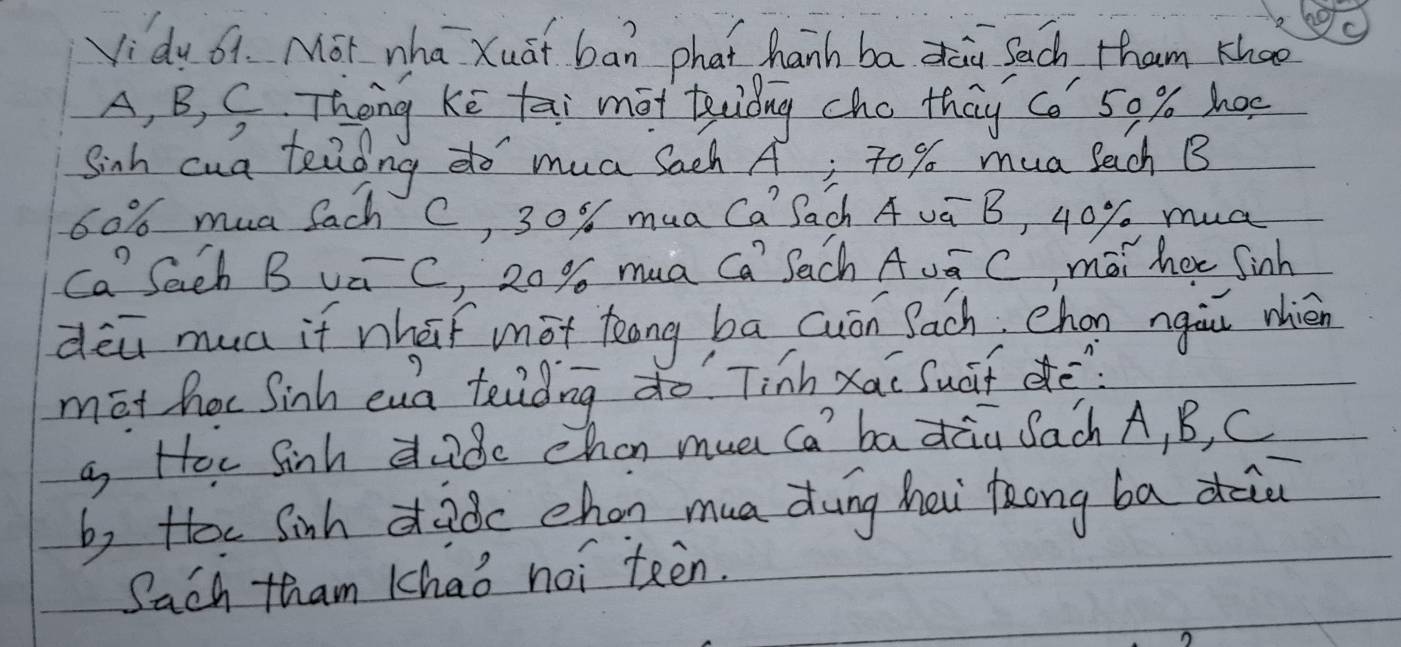 Ví dụ 61. Một nhà xuất bản phát hành ba đầu sách tham khảo
A, B, C. Thống kê tại một trường cho thấy có 50% học
sinh của trường đó mua sách A; 70% mua sách B
60% mua sách C, 30% mua cả sách A và B, 40% mua
cả sách B và C, 20% mua cả sách A và C, mỗi học sinh
đều mua ít nhất một trong ba cuốn sách. Chọn ngẫu nhiên
một học sinh của trường đó. Tính xác suất để:
a, Học sinh được chọn mua cả ba đầu sách A, B, C
b, Học sinh được chọn mua đúng hai trong ba đầu
sách tham khảo nói trên.